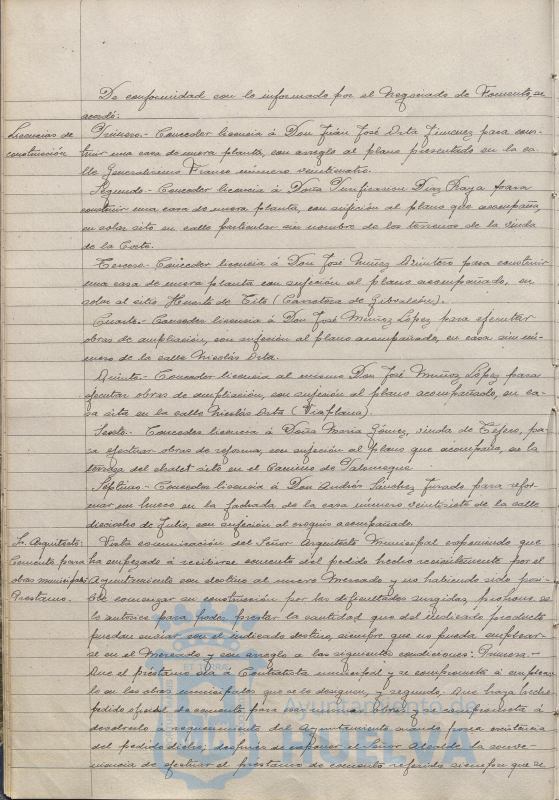 De conformidad con lo informado por el Negociado de Fomento, se
acordó:
Licencias de
construcción
Primero.- Conceder licencia á Don Juan José Orta Jimenez para cons-
truir una casa de nueva planta, con arreglo al plano presentado en la ca-
lle Generalísimo Franco número veinticuatro.
Segundo.- Conceder licencia á Doña Purificación Díaz Raya para
construir una casa de nueva planta, con sujeción al plano que acompaña,
en solar sito en calle particular sin nombre de los terrenos de la viuda
de la Corte.
Tercero.- Conceder licencia á Don José Núñez Quintero para construir
una casa de nueva planta con sujeción al plano acompañado, en
solar al sitio Huerto de Tito (Carretera de Gibraleón).
Cuarto.- Conceder licencia á Don José Muñoz López para ejecutar
obras de ampliación, con sujeción al plano acompañado, en casa sin nú-
mero de la calle Nicolás Orta.
Quinto.- Conceder licencia al mismo Don José Muñoz López para
ejecutar obras de ampliación, con sujeción al plano acompañado, en ca-
sa sita en la calle Nicolás Orta (Viaplana).
Sexto.- Conceder licencia á Doña María Gómez, viuda de Tejero, pa-
ra efectuar obras de reforma, con sujeción al plano que acompaña, en la
terraza del chalet sito en el Camino de Palomeque.
Séptimo.- Conceder licencia á Don Andrés Sánchez Jurado para refor-
mar un hueco en la fachada de la casa número veintisiete de la calle
dieciocho de Julio, con sujeción al croquis acompañado.
Sr. Arquitecto:
Cemento para
obras municipales
Préstamo.
Vista comunicación del Señor Arquitecto Municipal exponiendo que
ha empezado á recibirse cemento del pedido hecho recientemente por el
Ayuntamiento con destino al nuevo Mercado y no habiendo sido posi-
ble comenzar su construcción por las dificultades surgidas, propone se
lo autorice para poder prestar la cantidad que del indicado producto
puedan enviar con el indicado destino, siempre que no pueda emplear-
se en el Mercado y con arreglo a las siguientes condiciones: Primera.-
Que el préstamo sea á Contratista municipal y se comprometa á emplear-
lo en las obras municipales que se le designen, y segunda: Que haya hecho
pedido oficial de cemento para esas mismas obras y se comprometa á
devolverlo á requerimiento del Ayuntamiento cuando tenga existencia
del pedido dicho; después de exponer el Señor Alcalde la conve-
niencia de efectuar el préstamo de cemento referido siempre que se
Ayuntamiento de
HUELVA